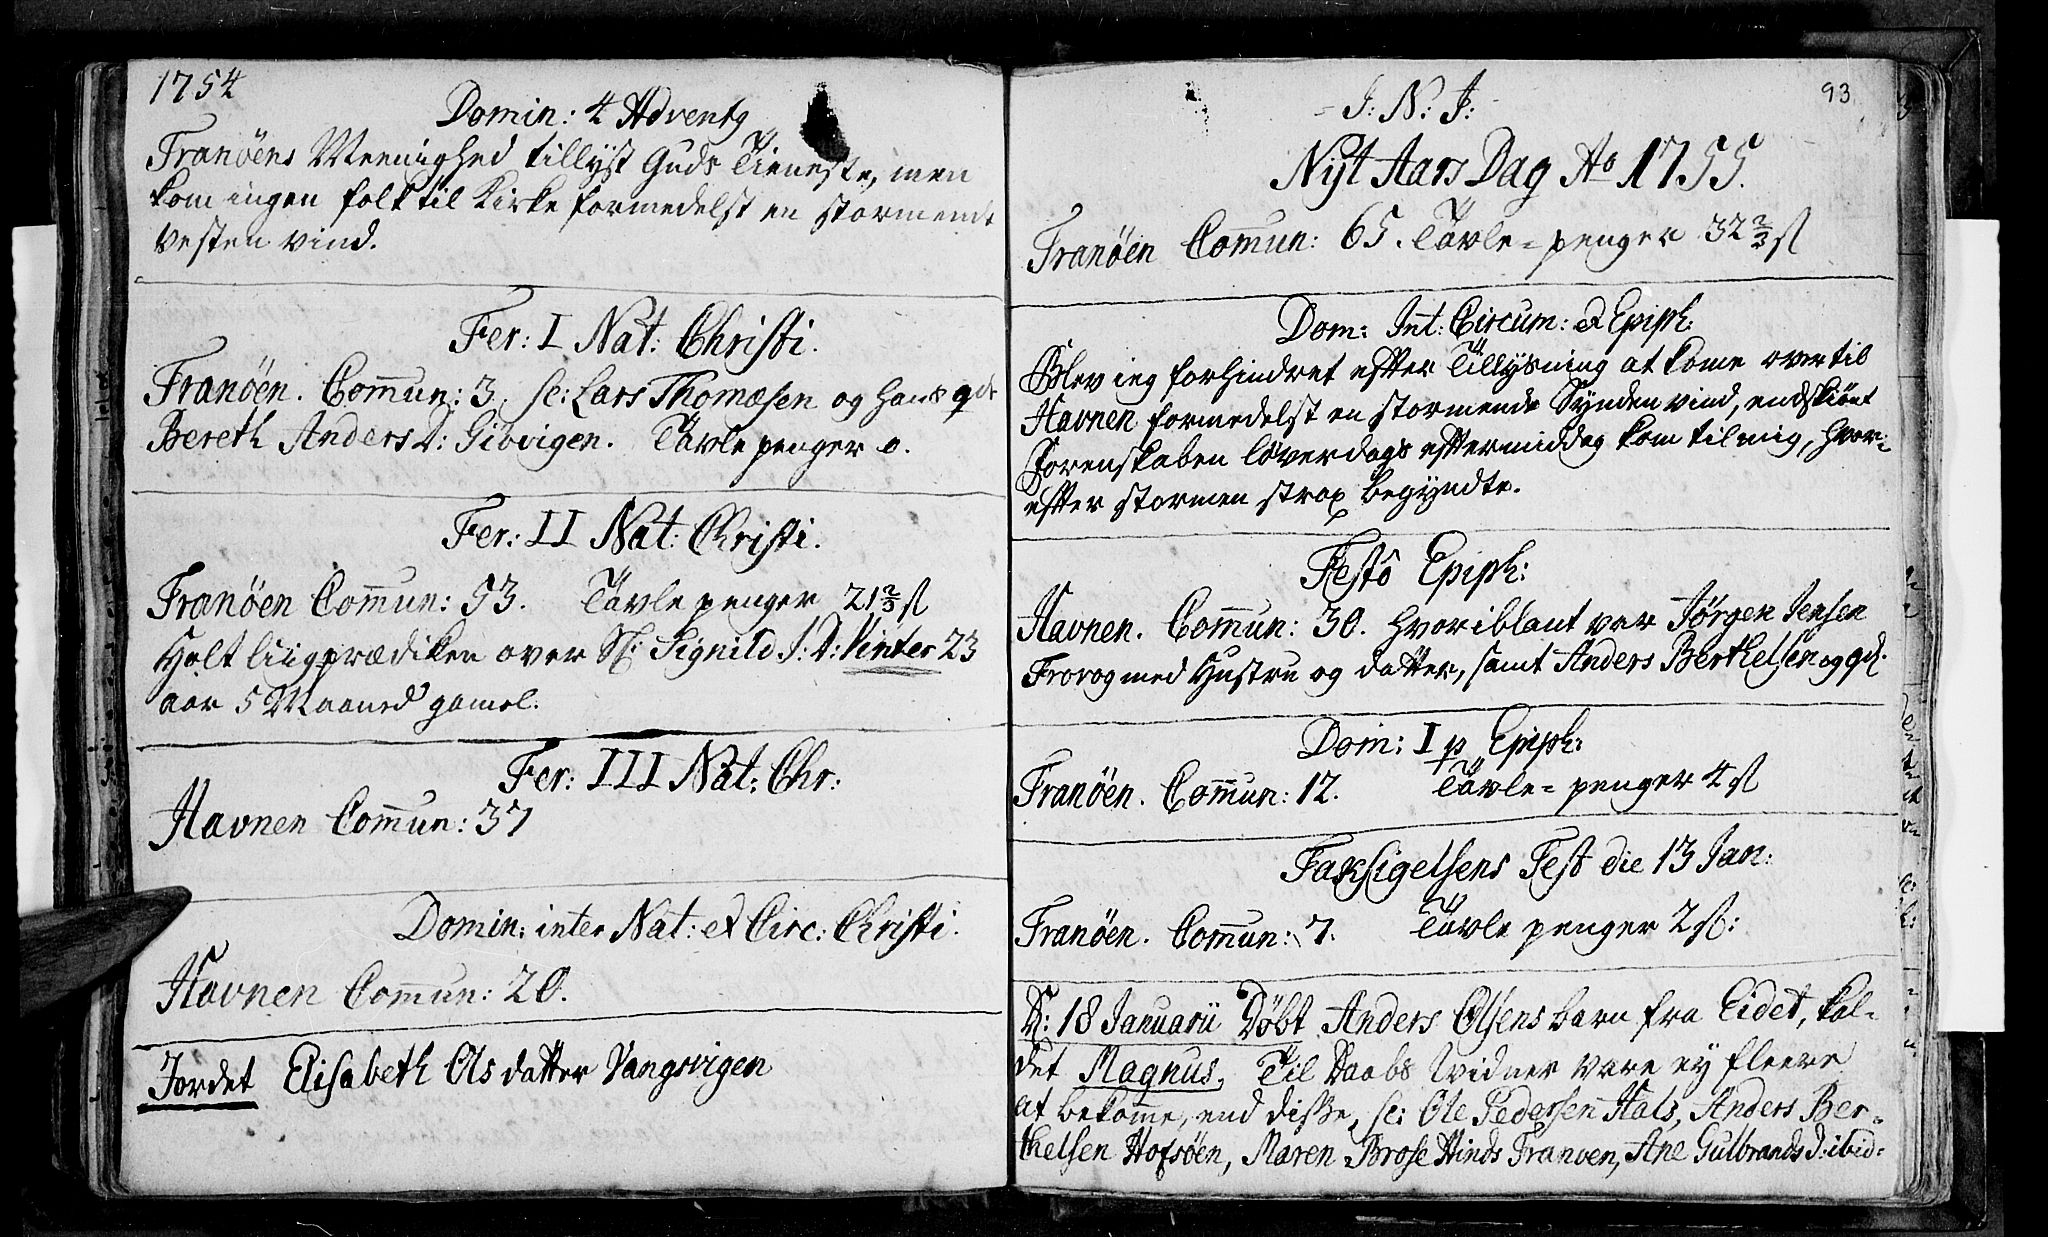 1754
Domin: 4 Adventg
Tranöens Meenighed tillyst Guds Tieneste, men
kom ingen folk til Kirke formedelst en stormende
vesten vind.
Fer: I Nat: Christi.
Tranöen. Comun: 3. sc: Lars Thomæsen og hans qde
Bereth Anders D: Gibvigen. Tavle penger 0.
Fer: II Nat: Christi.
Tranöen Comun: 53. Tavle penger 21 2/3 ſl
Holt liigprædiken over Sl: Signild J: D: Vinter 23
aar 5 Maaned gamel.
Fer: III Nat: Chr:
Havnen Comun: 37
Domin: inter Nat: et Circ: Christi.
Havnen Comun: 20.
Jordet Elisabeth Olsdatter Vangsvigen
93
J: N: J:
Nÿt Aars Dag Ao 1755.
Tranöen Comun: 65. Tavle= penger 32 2/3 ſl
Dom: Int: Circum: et Epiph:
Blev ieg forhindret efter Tillysning at kome over til
Havnen formedelst en stormende Synden vind, endskiönt
Forenskaben löverdags eftermiddag kom til mig, hvor-
efter stormen strax begÿndte.
Festô Epiph:
Havnen. Comun: 30. hvoriblant var Jørgen Jensen
Frovog med Hustru og datter, samt Anders Berthelsen og qd.
Dom: I p Epiph:
Tranöen. Comun: 12. Tavle= penger 4 ſl
Taksigelsens Fest die 13 Jan:
Tranöen. Comun: 7. Tavle penger 2 ſl:
D: 18 Januarii Døbt Anders Olsens barn fra Eidet, kal-
det Magnus. Til Daabs Widner vare ey fleere
at bekomme, end disse, sc: Ole Pedersen Hals, Anders Ber-
thelsen Hofsöen, Maren Brose Hinds Tranoen, Ane Gulbrands D: ibid: